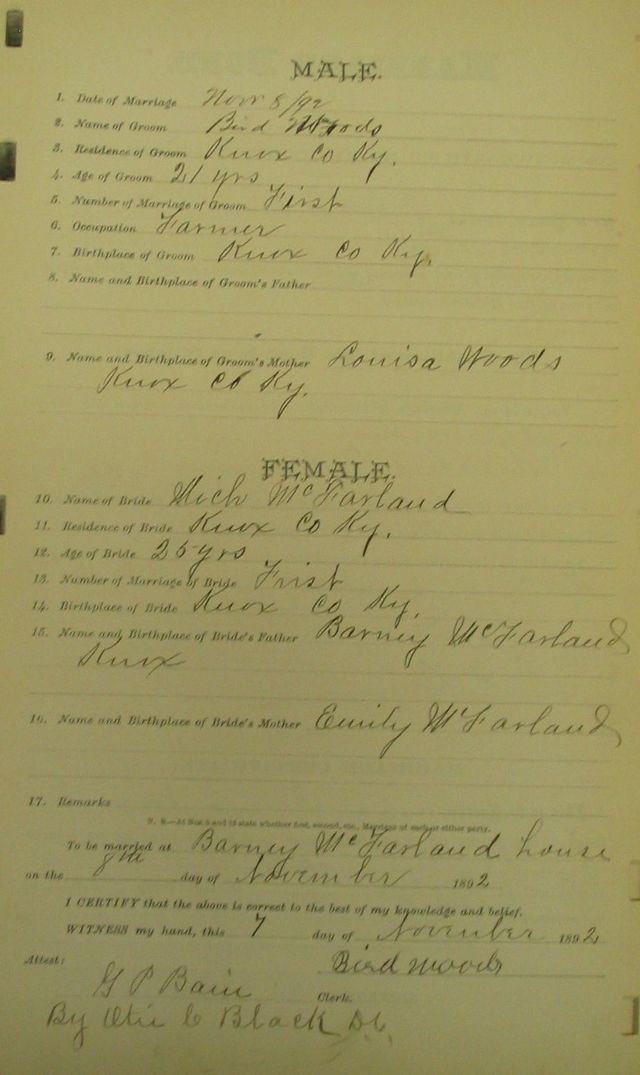 MALE.
1. Date of Marriage Nov 8/92
2. Name of Groom Bird Woods
3. Residence of Groom Knox Co Ky.
4. Age of Groom 21 yrs
5. Number of Marriage of Groom First
6. Occupation Farmer
7. Birthplace of Groom Knox Co Ky.
8. Name and Birthplace of Groom's Father
9. Name and Birthplace of Groom's Mother Louisa Woods
Knox Co Ky.
FEMALE.
10. Name of Bride McFarland
11. Residence of Bride Knox Co Ky.
12. Age of Bride 25 yrs
13. Number of Marriage of Bride Frist
14. Birthplace of Bride Knox Co Ky.
15. Name and Birthplace of Bride's Father Barney McFarland
Knox
16. Name and Birthplace of Bride's Mother Emily McFarland
17. Remarks
N. B.—At Nos 5 and 13 state whether first, second, etc., Marriage of each or either party.
To be married at Barney McFarland house
on the 8th day of November 1892
I CERTIFY that the above is correct to the best of my knowledge and belief.
WITNESS my hand, this 7 day of November 1892
Bird Woods
Attest:
G P Bain Clerk.
By Otis C Black D.C.